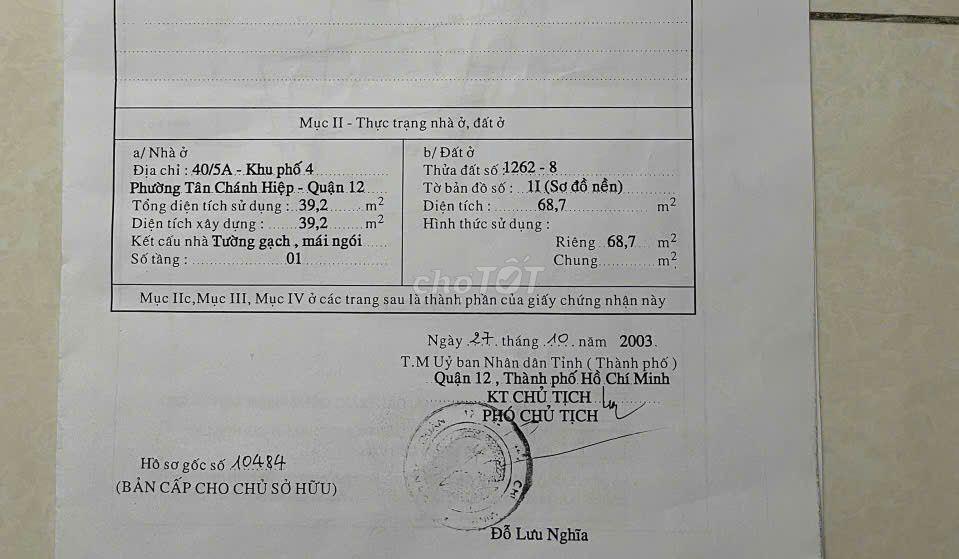 Mục II - Thực trạng nhà ở, đất ở
a/ Nhà ở
Địa chỉ : 40/5A - Khu phố 4
Phường Tân Chánh Hiệp - Quận 12
Tổng diện tích sử dụng : 39,2 m2
Diện tích xây dựng : 39,2 m2
Kết cấu nhà Tường gạch , mái ngói
Số tầng : 01
b/ Đất ở
Thửa đất số : 1262 - 8
Tờ bản đồ số : 1I (Sơ đồ nền)
Diện tích : 68,7 m2
Hình thức sử dụng :
Riêng 68,7 m2
Chung m2
choTỐT
Mục IIc, Mục III, Mục IV ở các trang sau là thành phần của giấy chứng nhận này
Ngày 27 tháng 10 năm 2003.
T.M Uỷ ban Nhân dân Tỉnh ( Thành phố )
Quận 12 , Thành phố Hồ Chí Minh
KT CHỦ TỊCH
PHÓ CHỦ TỊCH
Hồ sơ gốc số 10484
(BẢN CẤP CHO CHỦ SỞ HỮU)
Đỗ Lưu Nghĩa